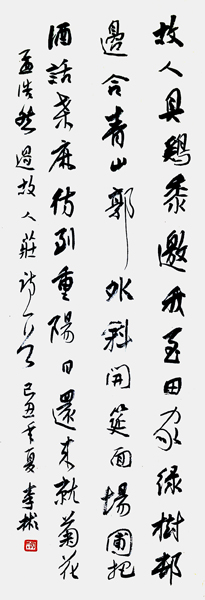 故人具鷄黍邀我至田家綠樹邨
邊合青山郭外斜開筵面場圃把
酒話桑麻待到重陽日還來就菊花
孟浩然過故人莊詩一首己丑年夏李彬